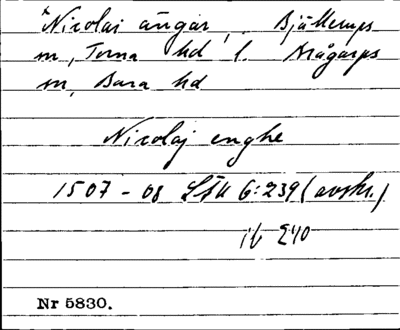 *Nicolai ängar, Bjällerups
sn, Torna hd l. Mågarps
sn, Bara hd
Nicolaj enghe
1507-08 LÄU G:239 (avskr.)
ib 240
Nr 5830.